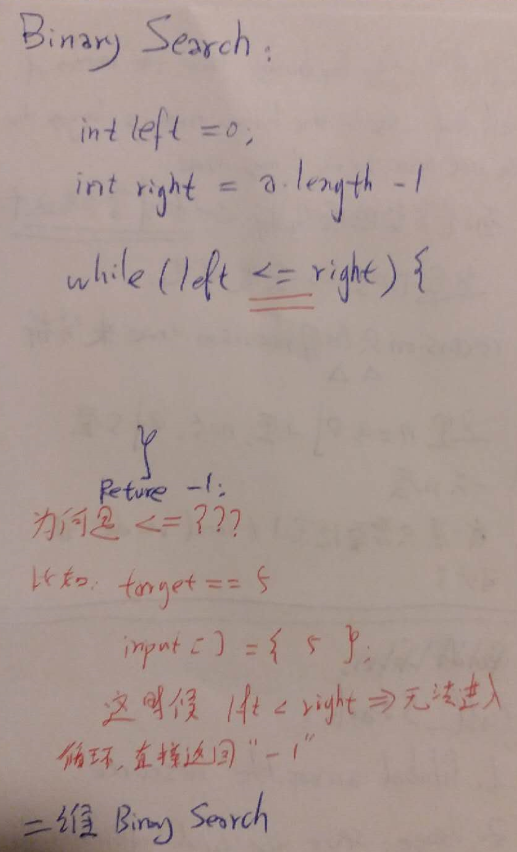 Binary Search:
int left = 0;
int right = a.length -1
while (left <= right) {
}
Reture -1;
为何是 <= ???
比如: target == 5
input[] = { 5 };
这时候 left < right ⇒ 无法进入
循环, 直接返回 "-1"
二维 Binary Search